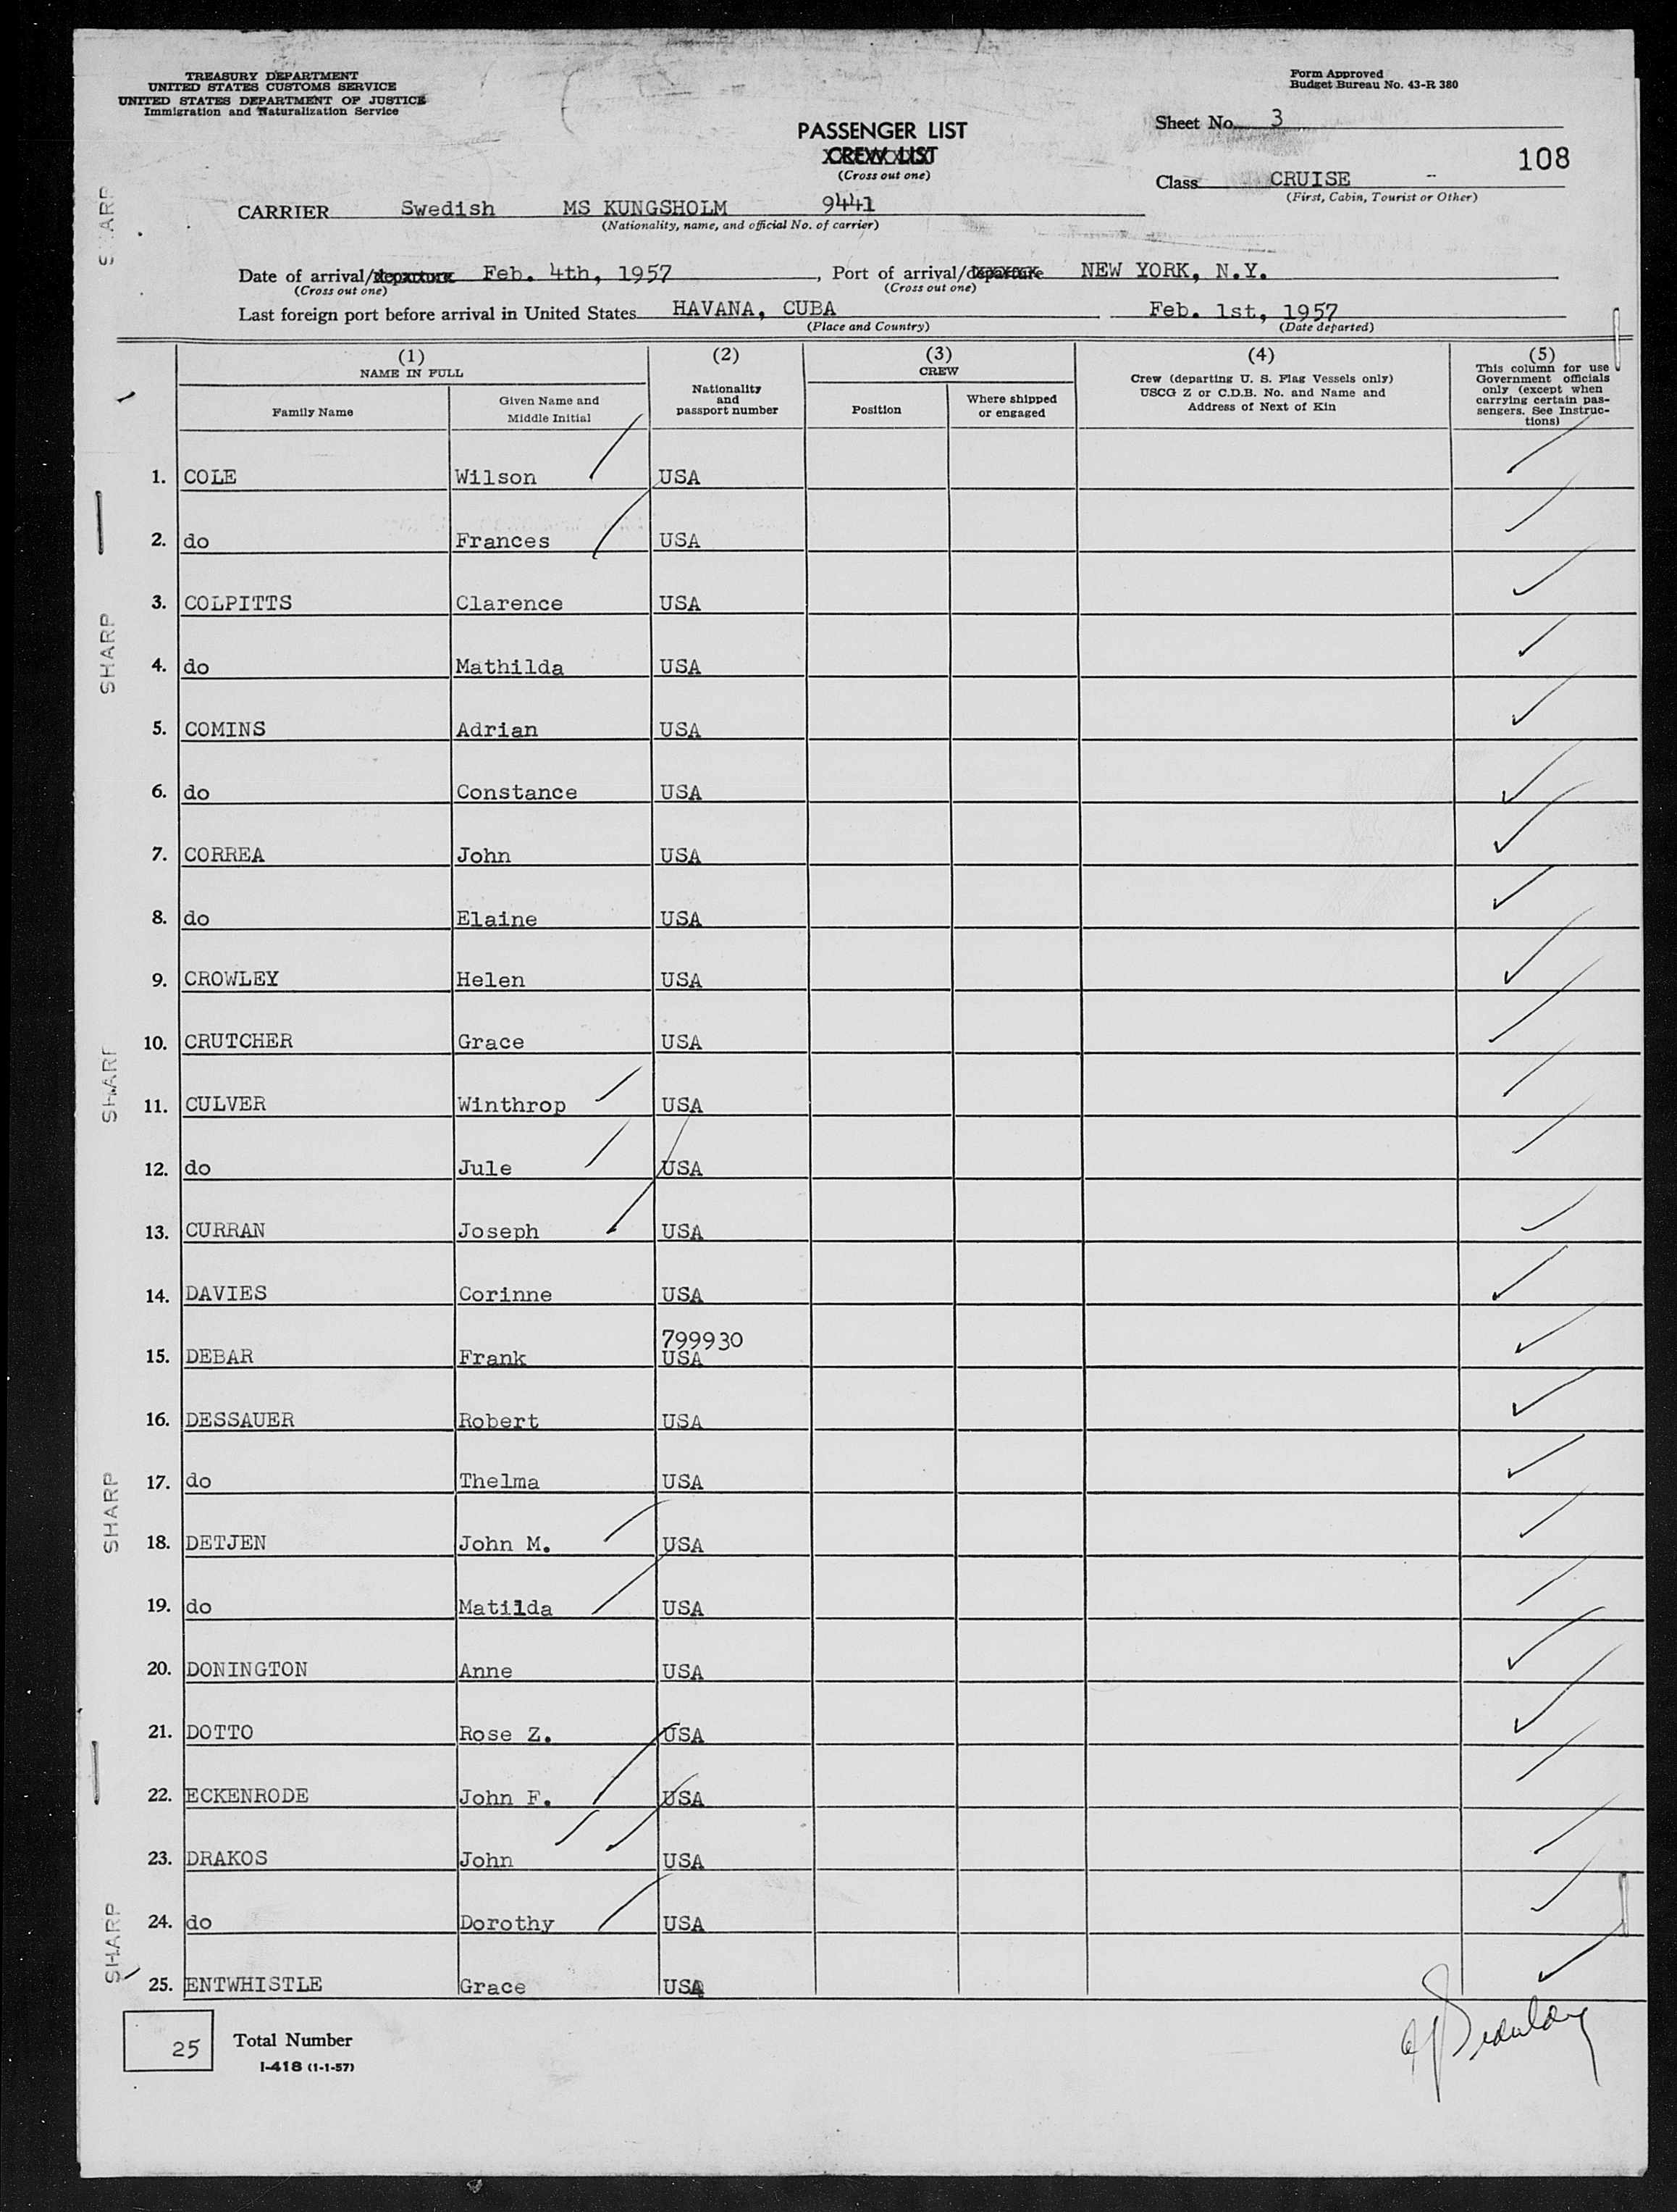 TREASURY DEPARTMENT
UNITED STATES CUSTOMS SERVICE
UNITED STATES DEPARTMENT OF JUSTICE
Immigration and Naturalization Service
Form Approved
Budget Bureau No. 43-R 380
PASSENGER LIST
CREW LIST
(Cross out one)
Sheet No. 3
108
Class CRUISE -
(First, Cabin, Tourist or Other)
CARRIER Swedish MS KUNGSHOLM 9441
(Nationality, name, and official No. of carrier)
Date of arrival/departure Feb. 4th, 1957, Port of arrival/departure NEW YORK, N.Y.
(Cross out one) (Cross out one)
Last foreign port before arrival in United States HAVANA, CUBA Feb. 1st, 1957
(Place and Country) (Date departed)
(1) (2) (3) (4) (5)
NAME IN FULL
Family Name
Given Name and Middle Initial
Nationality and passport number
CREW
Position
Where shipped or engaged
Crew (departing U. S. Flag Vessels only)
USCG Z or C.D.B. No. and Name and
Address of Next of Kin
This column for use
Government officials
only (except when
carrying certain pas-
sengers. See Instruc-
tions)
1. COLE Wilson USA
2. do Frances USA
3. COLPITTS Clarence USA
4. do Mathilda USA
5. COMINS Adrian USA
6. do Constance USA
7. CORREA John USA
8. do Elaine USA
9. CROWLEY Helen USA
10. CRUTCHER Grace USA
11. CULVER Winthrop USA
12. do Jule USA
13. CURRAN Joseph USA
14. DAVIES Corinne USA
799930
15. DEBAR Frank USA
16. DESSAUER Robert USA
17. do Thelma USA
18. DETJEN John M. USA
19. do Matilda USA
20. DONINGTON Anne USA
21. DOTTO Rose Z. USA
22. ECKENRODE John F. USA
23. DRAKOS John USA
24. do Dorothy USA
25. ENTWHISTLE Grace USA
25 Total Number
I-418 (1-1-57)
SHARP
SHARP
SHARP
SHARP
SHARP